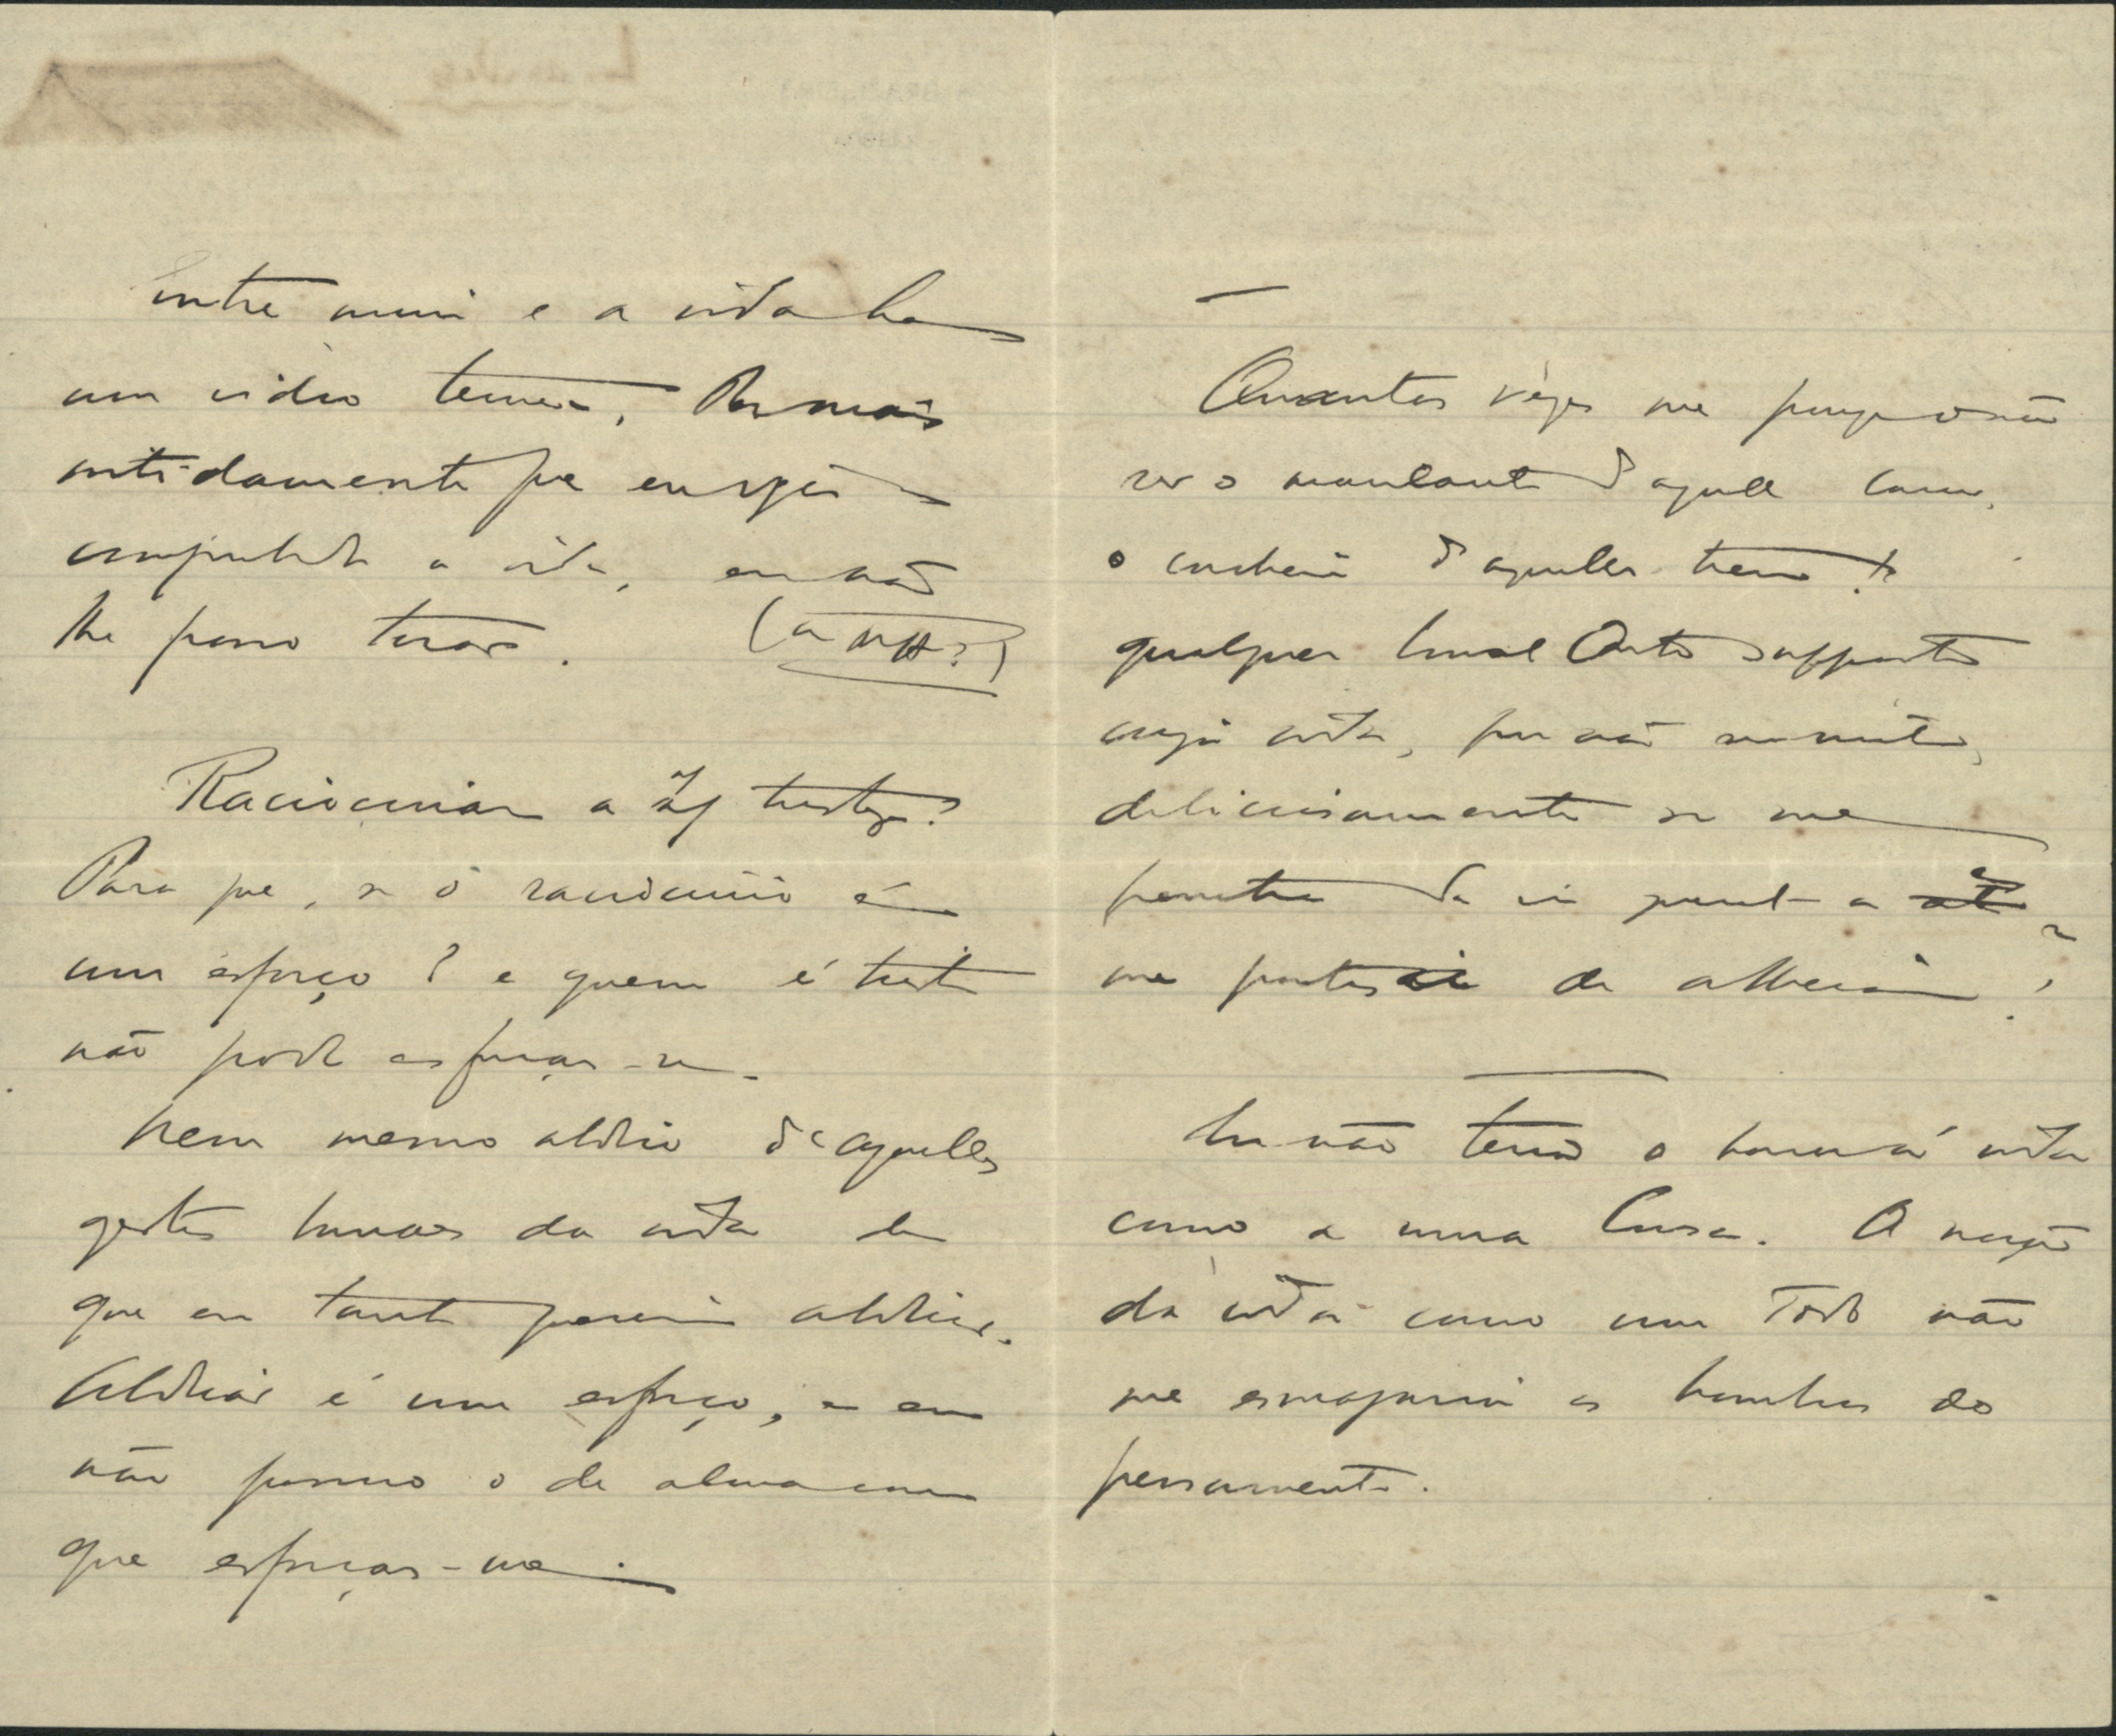 Entre mim e a vida ha
um vidro tenue. Por mais
nitidamente que eu veja e
comprehenda a vida, eu não
lhe posso tocar. (a app?)
Raciocinar a m/ tristeza?
Para que, se o raciocinio é
um esforço? e quem é triste
não pode esforçar-se.
Nem mesmo abdico d'aquelles
gestos banaes da vida de
que eu tanto quereria abdicar.
Abdicar é um esforço, e eu
não possuo o de alma com
que esforçar-me.
Quantas vezes me punge o não
ser o d'aquelle carro,
o cocheiro d'aquelle trem!
qualquer banal Outro supposto
cuja vida, por não ser minha,
deliciosamente se me
penetra de eu querel-a e
me de alheia!
Eu não teria o horror á vida
como a uma Cousa. A noção
da vida como um Todo não
me esmagaria os hombros do
pensamento.